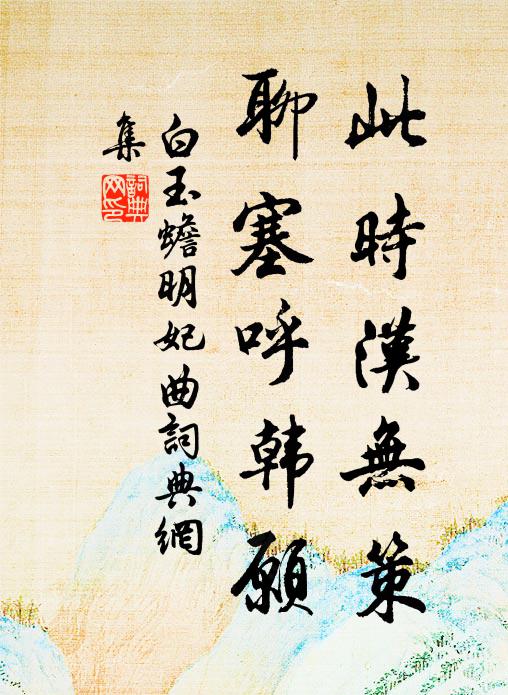 此時漢無策
聊塞呼韩願
白玉蟾明妃曲詞典網
集
詞典网印